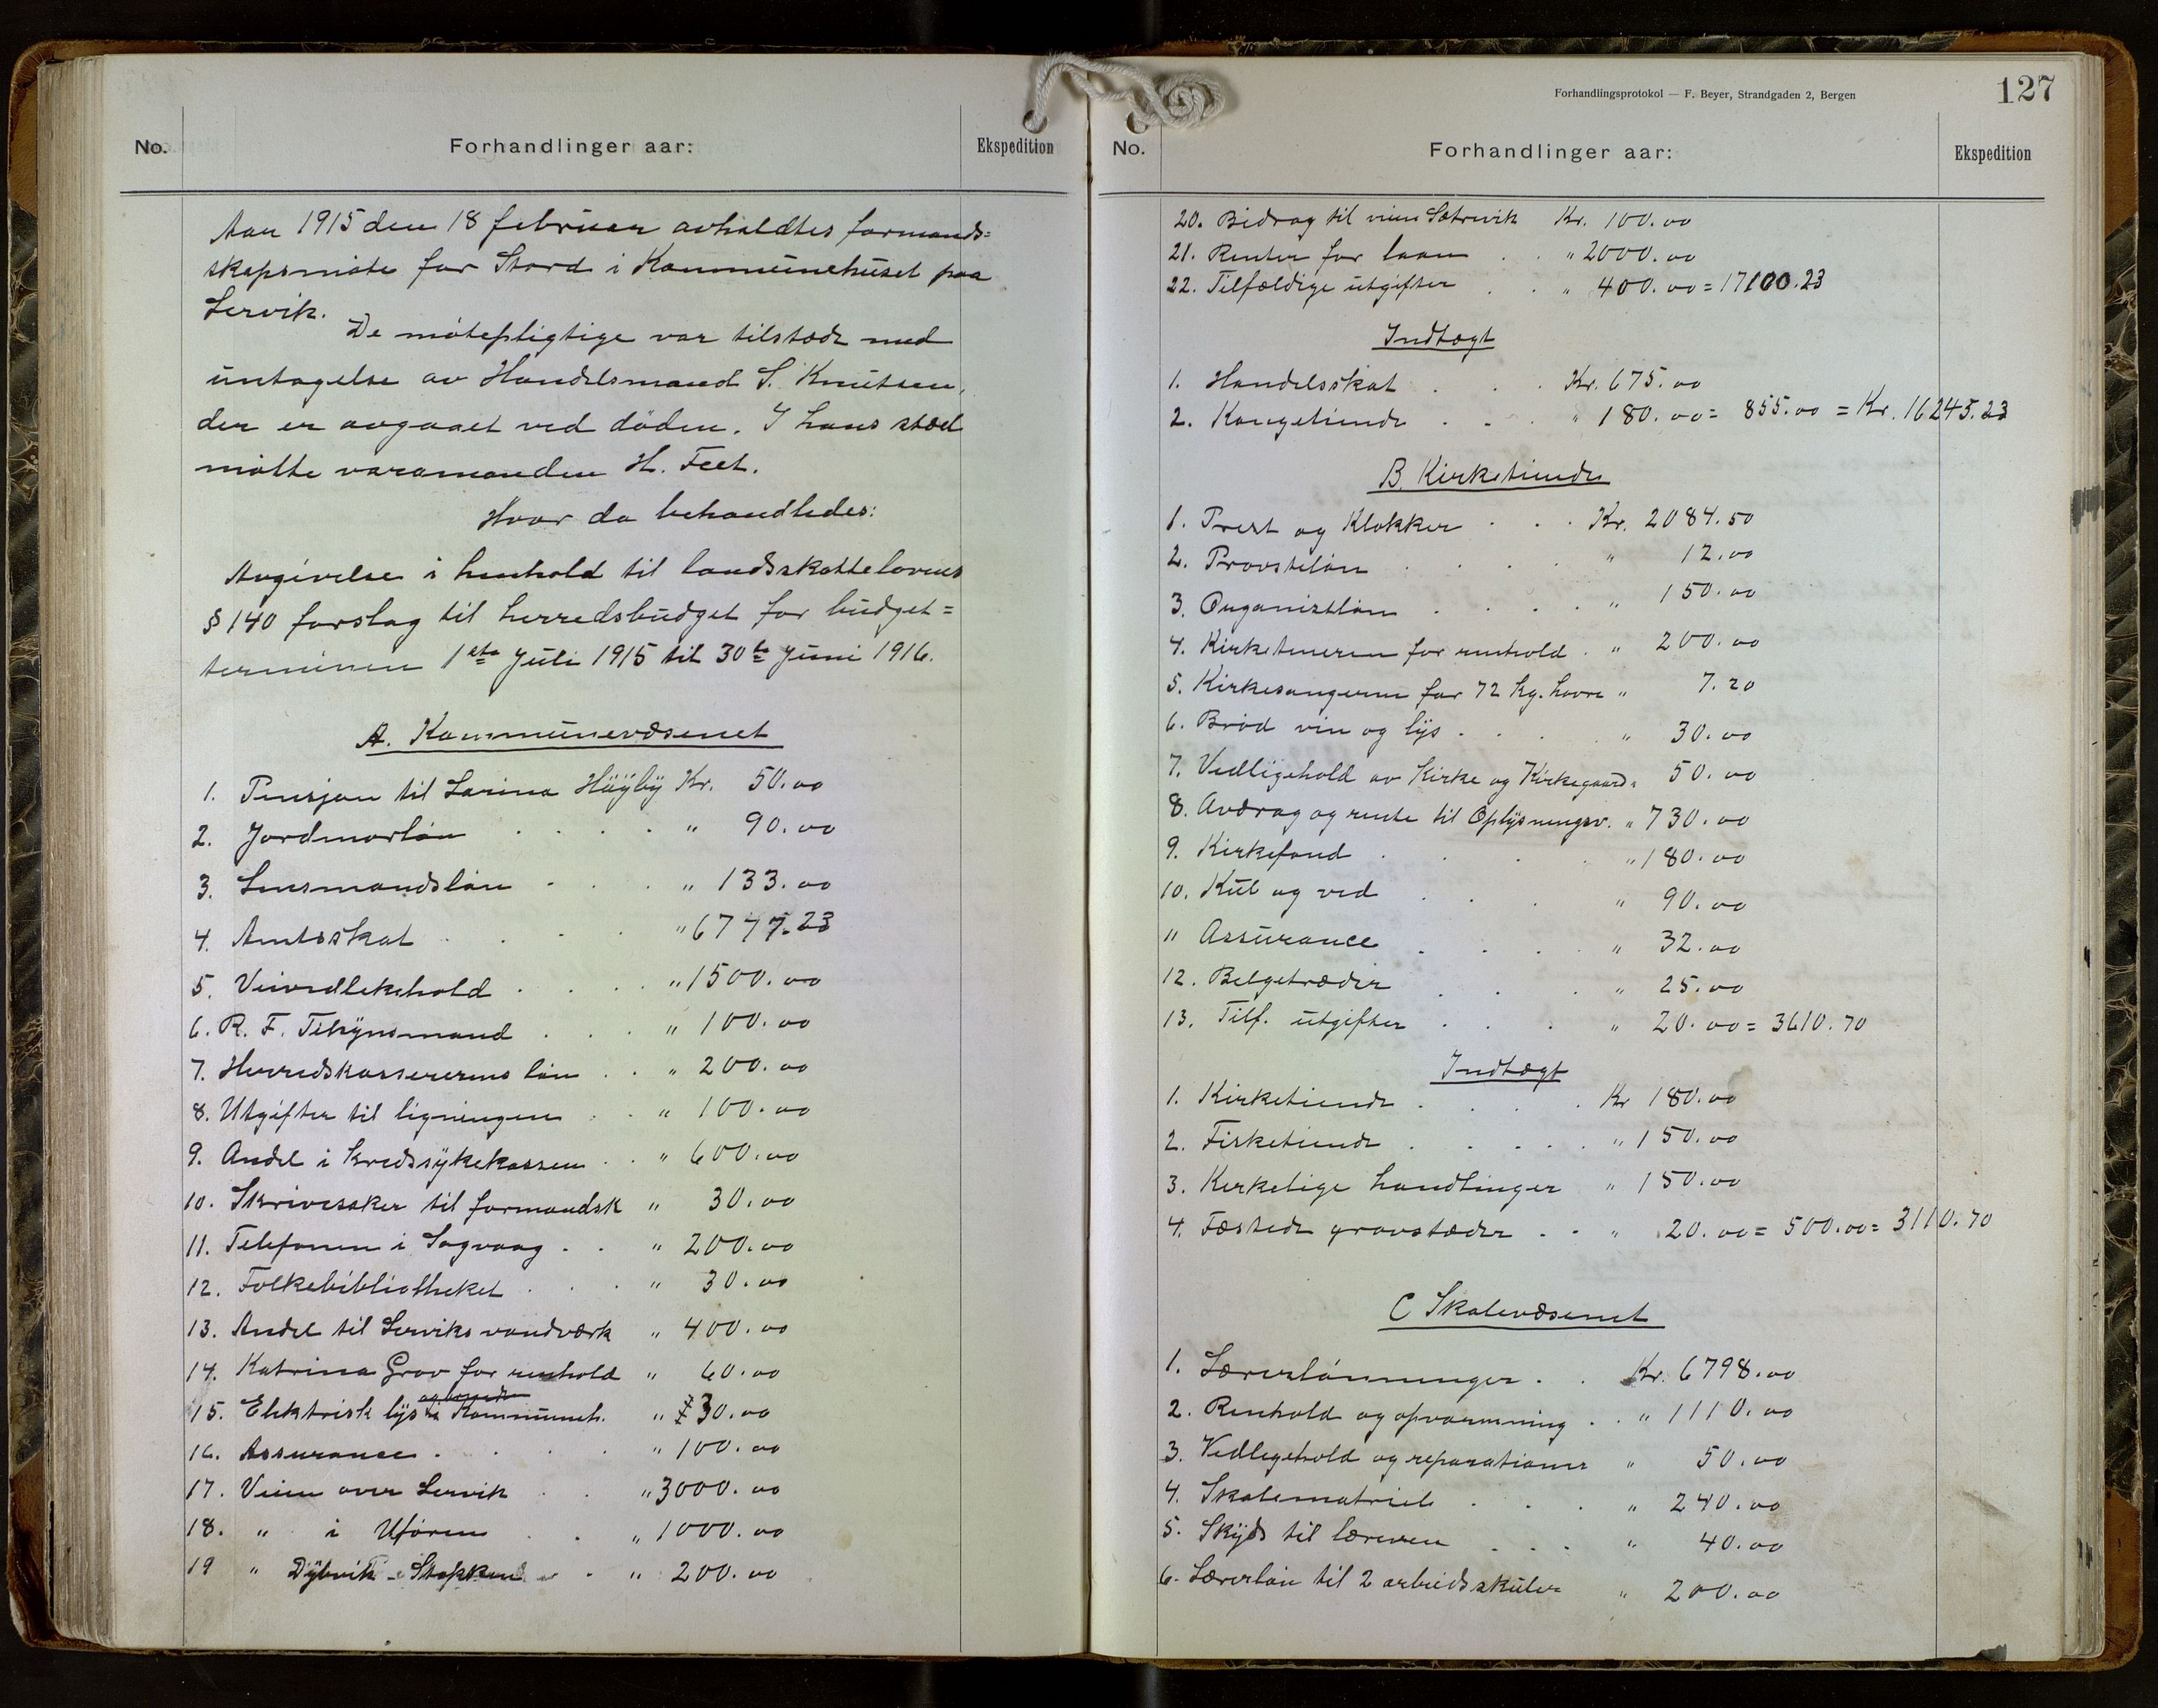 No.
Forhandlinger aar:
Ekspedition
Aar 1915 den 18 februar avholdtes formand-
skapsmøte for Stord i Kommunehuset paa
Lervik.
De møtepligtige var tilstæde med
untagelse av Handelsmand S. Knutsen,
der er avgaaet ved døden. I hans sted
møtte varamanden H. Feet.
Hvor da behandledes:
Avgivelse i henhold til landsskattelovens
§ 140 forslag til herredsbudget for budget-
terminen 1ste Juli 1915 til 30te Juni 1916.
A. Kommunevæsenet
1. Pensjon til Larina Høyby Kr. 50.00
2. Jordmorløn . . . . " 90.00
3. Lensmandsløn . . . " 133.00
4. Amtsskat . . . . " 6747.23
5. Veivedlekehold . . . . " 1500.00
6. R. F. Tilsynsmand . . . " 100.00
7. Herredskassererens løn . . " 200.00
8. Utgifter til ligningen . . " 100.00
9. Andel i kredssykekassen . . " 600.00
10. Skrivesaker til formandsk " 30.00
11. Telefonen i Sagvaag . . " 200.00
12. Folkebibliotheket . . . " 30.00
13. Andel til Lerviks vandværk " 400.00
14. Katrina Grov for renhold " 60.00
15. Elektrisk lys i Kommuneh. " 30.00
16. Assurance . . . . " 100.00
17. Veien over Lervik . . " 3000.00
18. " i Uføren . . " 1000.00
19 " Dybvik - Stokken . " 200.00
Forhandlingsprotokol — F. Beyer, Strandgaden 2, Bergen
127
No.
Forhandlinger aar:
Ekspedition
20. Bidrag til veien Sætrevik Kr. 100.00
21. Renter for laan . . " 2000.00
22. Tilfældige utgifter . . " 400.00 = 17100.23
Indtægt
1. Handelsskat . . . Kr. 675.00
2. Kongetiende . . . " 180.00 = 855.00 = Kr. 16245.23
B. Kirketiende
1. Prest og Klokker . . . Kr. 2084.50
2. Provsteløn . . . . " 12.00
3. Organistløn . . . . " 150.00
4. Kirketjeneren for renhold . " 200.00
5. Kirkesangeren for 72 kg. havre " 7.20
6. Brød vin og lys . . . " 30.00
7. Vedligehold av Kirke og Kirkegaard " 50.00
8. Avdrag og rente til Oplysningsv. " 730.00
9. Kirkefond . . . . " 180.00
10. Kul og ved . . . " 90.00
11 Assurance . . . " 32.00
12. Belgetræder . . . " 25.00
13. Tilf. utgifter . . . " 20.00 = 3610.70
Indtægt
1. Kirketiende . . . . Kr 180.00
2. Fisketiende . . . . . " 150.00
3. Kirkelige handlinger " 150.00
4. Fæstede gravstæder . . " 20.00 = 500.00 = 3110.70
C Skolevæsenet
1. Lærerlønninger . . Kr. 6798.00
2. Renhold og opvarmning . . " 1110.00
3. Vedligehold og reparationer " 50.00
4. Skolematriel . . . " 240.00
5. Skyds til læreren . . . " 40.00
6. Lærerløn til 2 arbeidsskuler " 200.00